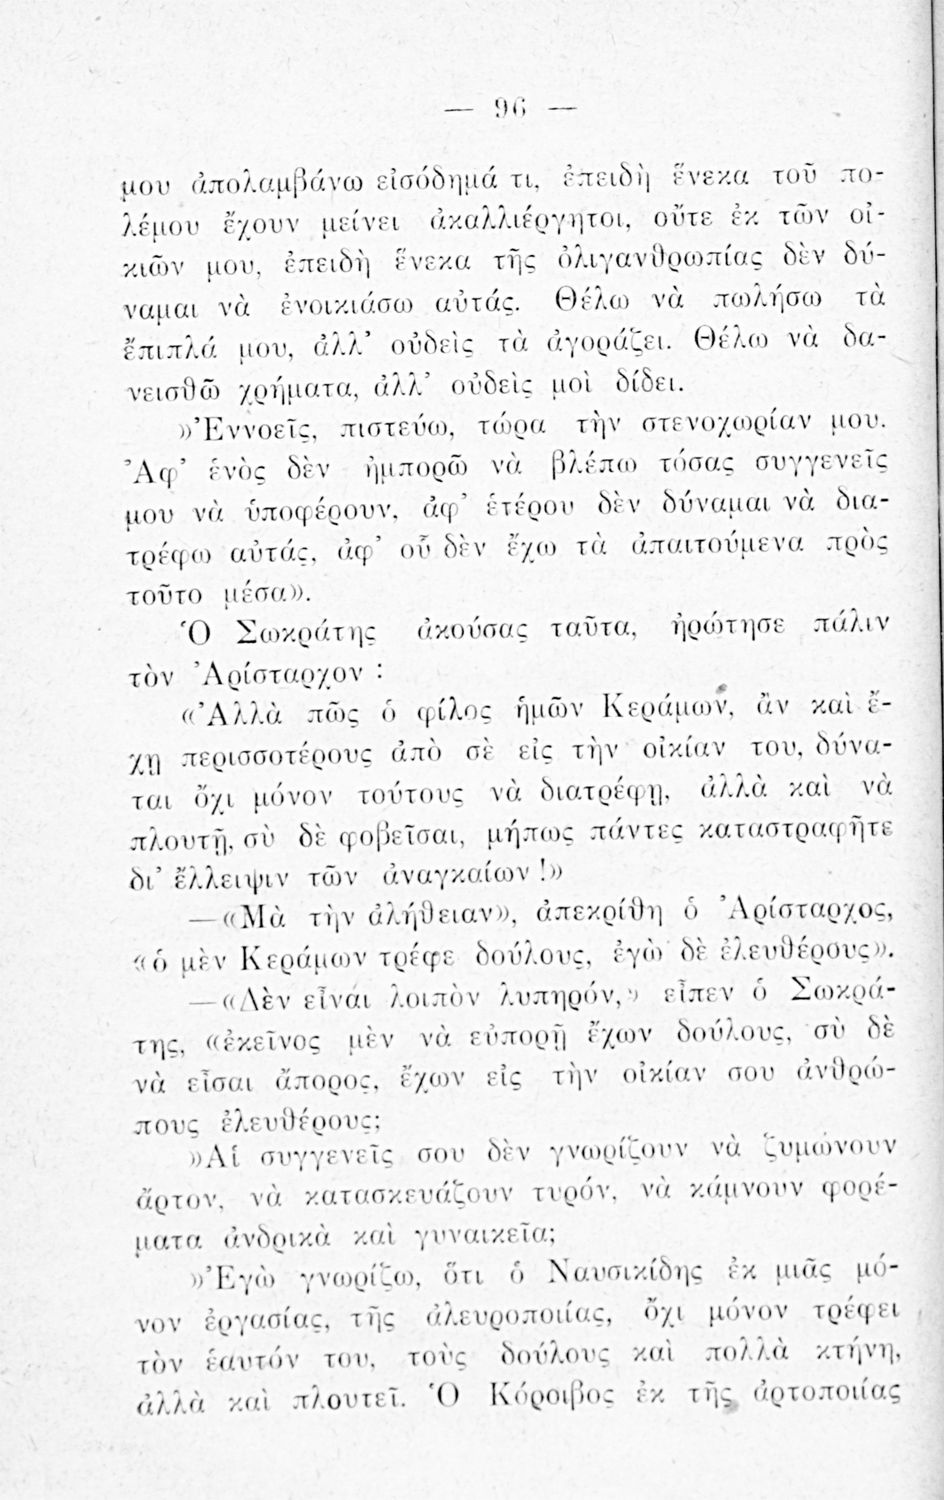 — 96 —
μου ἀπολαμβάνω εἰσόδημά τι, ἐπειδὴ ἕνεκα τοῦ πο-
λέμου ἔχουν μείνει ἀκαλλιέργητοι, οὔτε ἐκ τῶν οἰ-
κιῶν μου, ἐπειδὴ ἕνεκα τῆς ὀλιγανθρωπίας δὲν δύ-
ναμαι νὰ ἐνοικιάσω αὐτάς. Θέλω νὰ πωλήσω τὰ
ἔπιπλά μου, ἀλλ' οὐδεὶς τὰ ἀγοράζει. Θέλω νὰ δα-
νεισθῶ χρήματα, ἀλλ' οὐδεὶς μοὶ δίδει.
»Ἐννοεῖς, πιστεύω, τώρα τὴν στενοχωρίαν μου.
Ἀφ' ἑνὸς δὲν ἠμπορῶ νὰ βλέπω τόσας συγγενεῖς
μου νὰ ὑποφέρουν, ἀφ' ἑτέρου δὲν δύναμαι νὰ δια-
τρέφω αὐτάς, ἀφ' οὗ δὲν ἔχω τὰ ἀπαιτούμενα πρὸς
τοῦτο μέσα».
Ὁ Σωκράτης ἀκούσας ταῦτα, ἠρώτησε πάλιν
τὸν Ἀρίσταρχον :
«Ἀλλὰ πῶς ὁ φίλος ἡμῶν Κεράμων, ἂν καὶ ἔ-
χῃ περισσοτέρους ἀπὸ σὲ εἰς τὴν οἰκίαν του, δύνα-
ται ὄχι μόνον τούτους νὰ διατρέφῃ, ἀλλὰ καὶ νὰ
πλουτῇ, σὺ δὲ φοβεῖσαι, μήπως πάντες καταστραφῆτε
δι' ἔλλειψιν τῶν ἀναγκαίων !»
—«Μὰ τὴν ἀλήθειαν», ἀπεκρίθη ὁ Ἀρίσταρχος,
«ὁ μὲν Κεράμων τρέφε δούλους, ἐγὼ δὲ ἐλευθέρους».
—«Δὲν εἶναι λοιπὸν λυπηρόν,» εἶπεν ὁ Σωκρά-
της, «ἐκεῖνος μὲν νὰ εὐπορῇ ἔχων δούλους, σὺ δὲ
νὰ εἶσαι ἄπορος, ἔχων εἰς τὴν οἰκίαν σου ἀνθρώ-
πους ἐλευθέρους;
»Αἱ συγγενεῖς σου δὲν γνωρίζουν νὰ ζυμώνουν
ἄρτον, νὰ κατασκευάζουν τυρόν, νὰ κάμνουν φορέ-
ματα ἀνδρικὰ καὶ γυναικεῖα;
»Ἐγὼ γνωρίζω, ὅτι ὁ Ναυσικίδης ἐκ μιᾶς μό-
νον ἐργασίας, τῆς ἀλευροποιίας, ὄχι μόνον τρέφει
τὸν ἑαυτόν του, τοὺς δούλους καὶ πολλὰ κτήνη,
ἀλλὰ καὶ πλουτεῖ. Ὁ Κόροιβος ἐκ τῆς ἀρτοποιίας